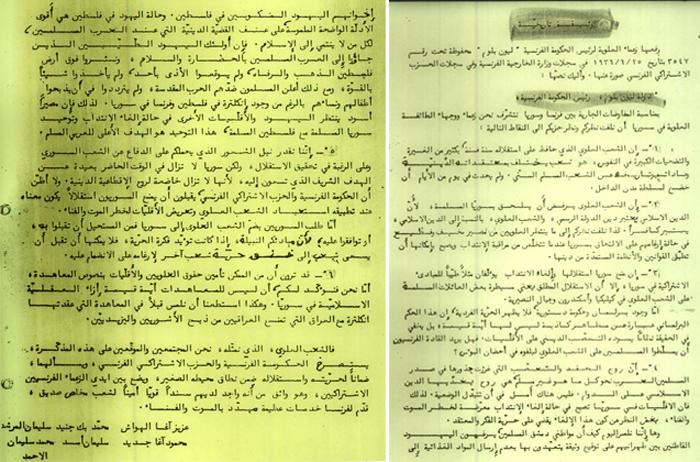 وثيقة تاريخية
رفعها زعماء العلوية لرئيس الحكومة الفرنسية "ليون بلوم" محفوظة تحت رقم
٣٥٤٧ بتاريخ ١٩٣٦/٦/١٥ في سجلات وزارة الخارجية الفرنسية وفي سجلات الحزب
الاشتراكي الفرنسي
دولة ليون بلوم، رئيس الحكومة الفرنسية
بمناسبة المفاوضات الجارية بين فرنسا وسوريا نتشرف نحن زعماء ووجهاء الطائفة
العلوية في سوريا أن نلفت نظركم ونظر حزبكم الى النقاط التالية :
١- إن الشعب العلوي الذي حافظ على استقلاله سنة فسنة بكثير من الغيرة
والتضحيات الكبيرة في النفوس ، هو شعب يختلف بمعتقداته الدينية
وعاداته وتاريخه عن الشعب المسلم السني ولم يحدث في يوم من الأيام أن
خضع لسلطة من الداخل .
٢- إن الشعب العلوي يرفض أن يلحق بسوريا المسلمة ، لأن
الدين الاسلامي يعتبر دين الدولة الرسمي ، والشعب العلوي ، بالنسبة الى الدين الاسلامي ،
يعتبر كافرا . لذا نلفت نظركم الى ما ينتظر العلويين من مصير مخيف وفظيع
في حالة إرغامهم على الالتحاق بسوريا عندما تتخلص من مراقبة الانتداب ويصبح بإمكانها أن
تطبق القوانين والأنظمة المستمدة من دينها .
٣- إن منح سوريا استقلالها وإلغاء الانتداب يؤلفان مثلا طيبا للمبادئ
الاشتراكية في سوريا ، إلا أن الاستقلال المطلق يعني سيطرة بعض العائلات المسلمة
على الشعب العلوي في كيليكيا وأسكندرون وجبال النصيرية .
أما وجود برلمان وحكومة دستورية فلا يظهر الحرية الفردية . إن هذا الحكم
البرلماني عبارة عن مظاهر كاذبة ليس لها أية قيمة ، بل يخفي
في الحقيقة نظاما يسوده التعصب الديني على الأقليات . فهل يريد القادة الفرنسيون
أن يسلطوا المسلمين على الشعب العلوي ليلقوه في أحضان البؤس ؟
٤- إن روح الحقد والتعصب التي غرزت جذورها في صدر
المسلمين العرب نحو كل ما هو غير مسلم هي روح يغذيها الدين
الاسلامي على الدوام . فليس هناك أمل في أن تتبدل الوضعية . لذلك
فإن الأقليات في سوريا تصبح في حالة إلغاء الانتداب معرضة لخطر الموت
والفناء ، بغض النظر عن كون هذا الإلغاء يقضي على حرية الفكر والمعتقد .
وها إننا نلمس اليوم كيف أن مواطني دمشق المسلمين يرغمون اليهود
القاطنين بين ظهرانيهم على توقيع وثيقة يتعهدون بها بعدم إرسال المواد الغذائية الى
إخوانهم اليهود المنكوبين في فلسطين . وحالة اليهود في فلسطين هي أقوى
الأدلة الواضحة الملموسة على عنف القضية الدينية التي عند العرب المسلمين
لكل من لا ينتمي الى الإسلام . فإن أولئك اليهود الطيبين الذين
جاؤوا الى العرب المسلمين بالحضارة والسلام ، ونشروا فوق أرض
فلسطين الذهب والرفاه ولم يوقعوا الأذى بأحد ولم يأخذوا شيئا
بالقوة ، ومع ذلك أعلن المسلمون ضدهم الحرب المقدسة ، ولم يترددوا في أن يذبحوا
أطفالهم ونساءهم بالرغم من وجود انكلترة في فلسطين وفرنسا في سوريا . لذلك فإن مصيرا
أسود ينتظر اليهود والأقليات الأخرى في حالة إلغاء الانتداب وتوحيد
سوريا المسلمة مع فلسطين المسلمة . هذا التوحيد هو الهدف الأعلى للعربي المسلم .
٥- إننا نقدر نبل الشعور الذي يحملكم على الدفاع عن الشعب السوري
وعلى الرغبة في تحقيق الاستقلال ، ولكن سوريا لا تزال في الوقت الحاضر بعيدة عن
الهدف الشريف الذي تسعون إليه ، لأنها لا تزال خاضعة لروح الإقطاعية الدينية . ولا أظن
أن الحكومة الفرنسية والحزب الاشتراكي الفرنسي يقبلون أن يمنح السوريون استقلالا يكون معناه
عند تطبيقه استعباد الشعب العلوي وتعريض الأقليات لخطر الموت والفناء .
أما طلب السوريين بضم الشعب العلوي الى سوريا فمن المستحيل أن تقبلوا به ،
أو توافقوا عليه ، لأن مبادئكم النبيلة ، إذا كانت تؤيد فكرة الحرية ، فلا يمكنها أن تقبل أن
يسعى شعب الى خنق حرية شعب آخر لإرغامه على الانضمام عليه .
٦- قد ترون أن من الممكن تأمين حقوق العلويين والأقليات بنصوص المعاهدة ،
أما نحن فنؤكد لكم أن ليس للمعاهدات أية قيمة إزاء العقلية
الاسلامية في سوريا . وهكذا استطعنا أن نلمس قبلا في المعاهدة التي عقدتها
انكلترة مع العراق التي تمنع العراقيين من ذبح الآشوريين واليزيديين .
فالشعب العلوي ، الذي نمثله ، نحن المجتمعين والموقعين على هذه المذكرة ،
يستصرخ الحكومة الفرنسية والحزب الاشتراكي الفرنسي ، ويسألهما ،
ضمانا لحريته واستقلاله ضمن نطاق محيطه الصغير ، ويضع بين ايدي الزعماء الفرنسيين
الاشتراكيين ، وهو واثق من أنه واجد لديهم سندا قويا أمينا لشعب مخلص صديق ،
قدم لفرنسا خدمات عظيمة مهدد بالموت والفناء .
عزيز آغا الهواش محمد بك جنيد سليمان المرشد
محمود آغا جديد سليمان أسد محمد سليمان
الاحمد